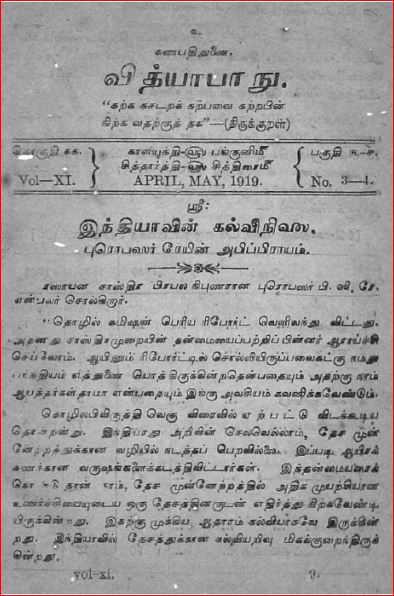 உ
கணபதிதுணை.
வித்யாபாநு.
“கற்க கசடறக் கற்பவை கற்றபின்
நிற்க வதற்குத் தக”—(திருக்குறள்)
தொகுதி கக. காளயுக்தி-௵ பங்குனிமீ பகுதி ௩-௪.
சித்தார்த்தி-௵ சித்திரைமீ
Vol—XI. APRIL, MAY, 1919. No. 3—4.
ஸ்ரீ:
இந்தியாவின் கல்விநிலை.
புரொபஸர் ரேயின் அபிப்பிராயம்.
ரஸாயன சாஸ்திர பிரபல நிபுணரான புரொபஸர் பி. ஸி. ரே.
என்பவர் சொல்கிறார்.
“தொழில் கமிஷன் பெரிய ரிபோர்ட் வெளிவந்து விட்டது.
அதனது சாஸ்திரமுறையின் தன்மையைப்பற்றிப் பின்னர் ஆராய்ச்சி
செய்வோம். ஆயினும் ரிபோர்ட்டில் சொல்லியிருப்பவைகட்கு நமது
எத்துணை பொருத்திருக்கின்றதென்பதையும் அதற்கு நாம்
ஆயத்தர்கள்தாமா என்பதையும் இங்கு அவசியம் கவனிக்கவேண்டும்.
தொழிலபிவிருத்தி வெகு விரைவில் ஏற்பட்டு விடக்கூடிய
தொன்றன்று. இந்தியாவது அறிவின் செலவெல்லாம், தேச முன்
னேற்றத்துக்கான வழியில் நடத்தப் பெறவில்லை. இப்படி ஆயிரக்
கணக்கான வருஷங்களைக்கடத்திவிட்டார்கள். இத்தன்மையைக்
கொண்டுதான் நாம், தேச முன்னேற்றத்தில் அதிக முயற்சியான
உணர்ச்சியையுடைய ஒரு தேசத்தினருடன் எதிர்த்து நிற்கவேண்டி
யிருக்கின்றது. இதற்கு முக்கிய ஆதாரம் கல்வியாகவே இருக்கின்
றது. இந்தியாவில் தேசத்துக்கான கல்வியறிவு மிகக்குறைந்திருக்
கின்றது.
vol-xi. 9.